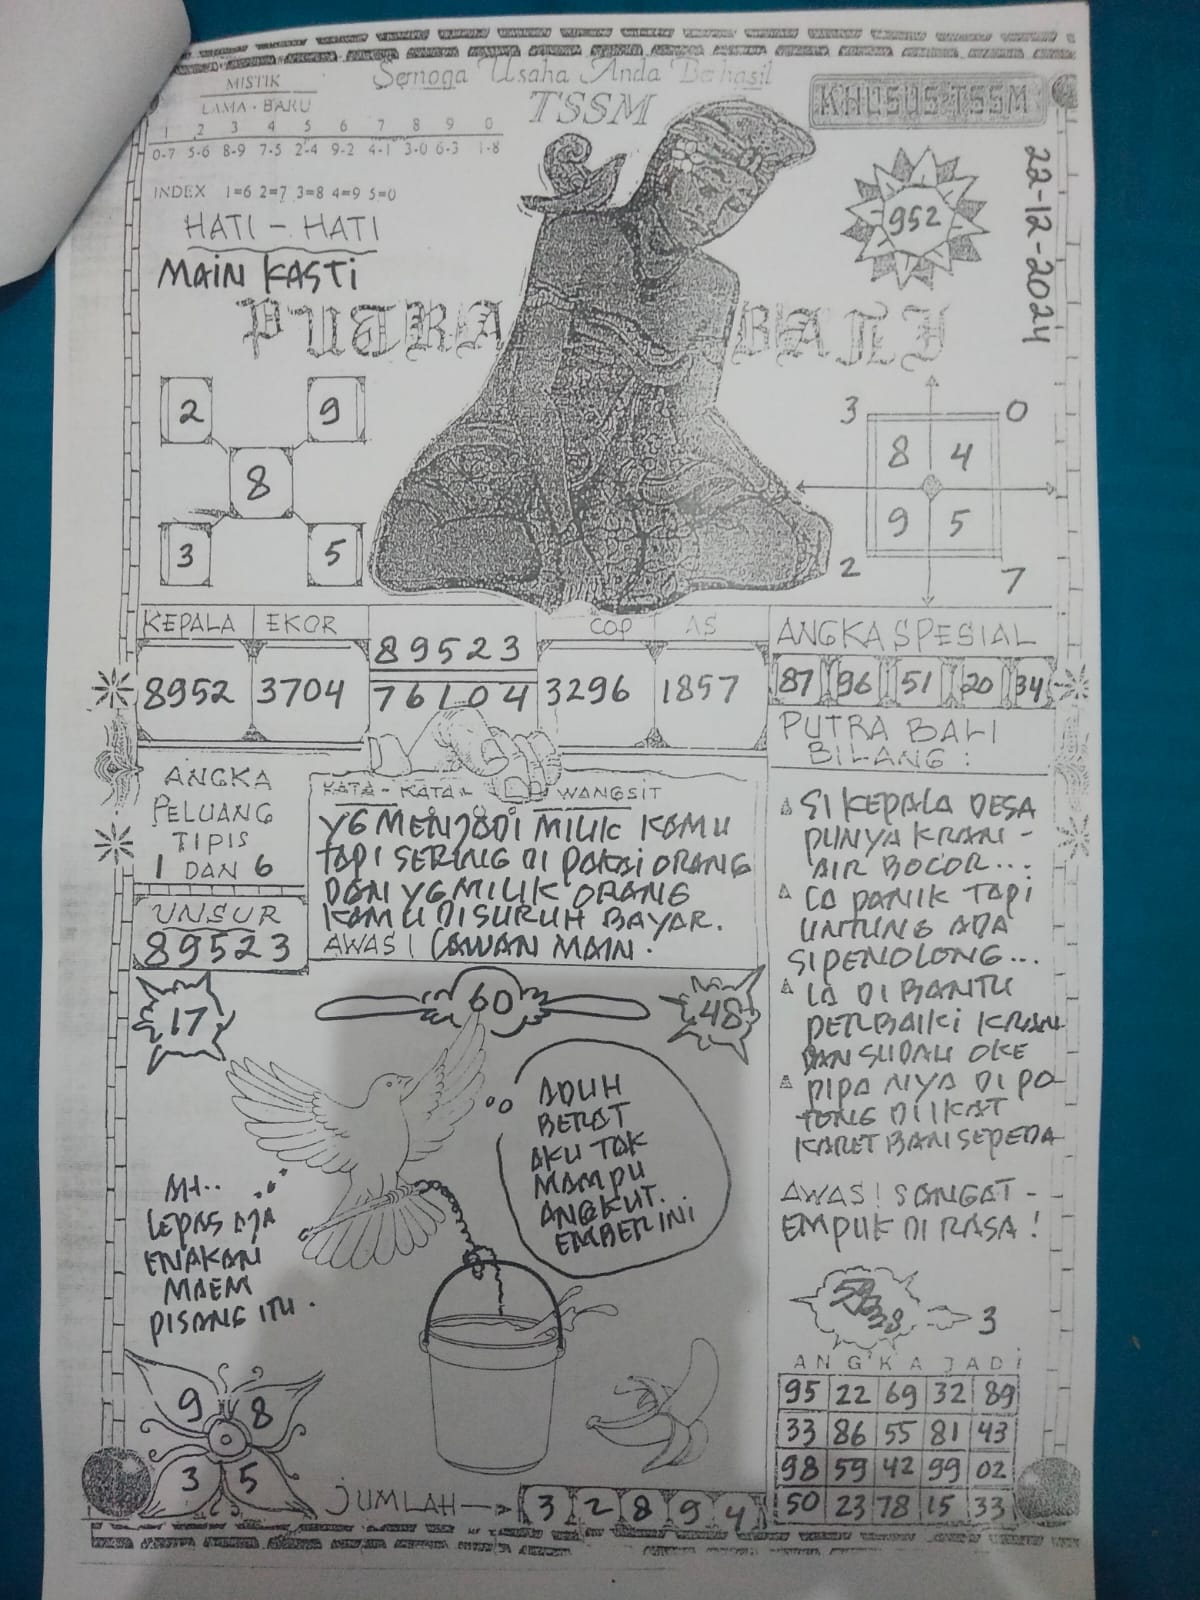 Semoga Usaha Anda Berhasil
TSSM
KHUSUS TSSM
MISTIK
LAMA - BARU
1 2 3 4 5 6 7 8 9 0
0-7 5-6 8-9 7-5 2-4 9-2 4-1 3-0 6-3 1-8
INDEX 1=6 2=7 3=8 4=9 5=0
HATI - HATI
MAIN KASTI
952
22-12-2024
PUTRA BALI
2 9
8
3 5
3 0
8 4
9 5
2 7
KEPALA EKOR
8952 3704
89523
76104
COP AS
3296 1857
ANGKA SPESIAL
87 96 51 20 34
ANGKA
PELUANG
TIPIS
1 DAN 6
UNSUR
89523
KATA - KATA WANGSIT
YG MENJADI MILIK KAMU
TAPI SERING DI PAKAI ORANG
DAN YG MILIK ORANG
KAMU DISURUH BAYAR.
AWAS! LAWAN MAIN.
PUTRA BALI
BILANG :
SI KEPALA DESA
PUNYA KRAN -
AIR BOCOR...
IA PANIK TAPI
UNTUNG ADA
SIPENOLONG...
IA DI BANTU
PERBAIKI KRAN
DAN SUDAH OKE
PIPA NYA DI PO
TONG DI IKAT
KARET BAN SEPEDA
AWAS! SANGAT -
EMPUK DI RASA!
17
60
48
ADUH
BERAT
AKU TAK
MAMPU
ANGKUT.
EMBER INI
AH..
LEPAS AJA
ENAKAN
MAEM
PISANG ITU.
9 8
3 5
JUMLAH
3 2 8 9 4
3
ANGKA JADI
95 22 69 32 89
33 86 55 81 43
98 59 42 99 02
50 23 78 15 33